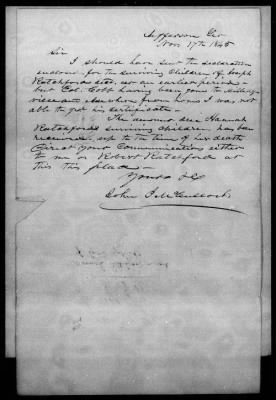 Jefferson Geo
Nov 17th 1845
Sir
I should have sent the declaration
enclosed for the surviving Children of Joseph
Ratchford decd. at an earlier period
but Col. Cobb having gone to
and from home I was not
able to get his certificate.
The amount due Hannah
Ratchfords surviving children has been
received up to the time of her death
Direct your Communications either
to me or Robert Ratchford at
this this place
Yours &c
John J. McCulloch